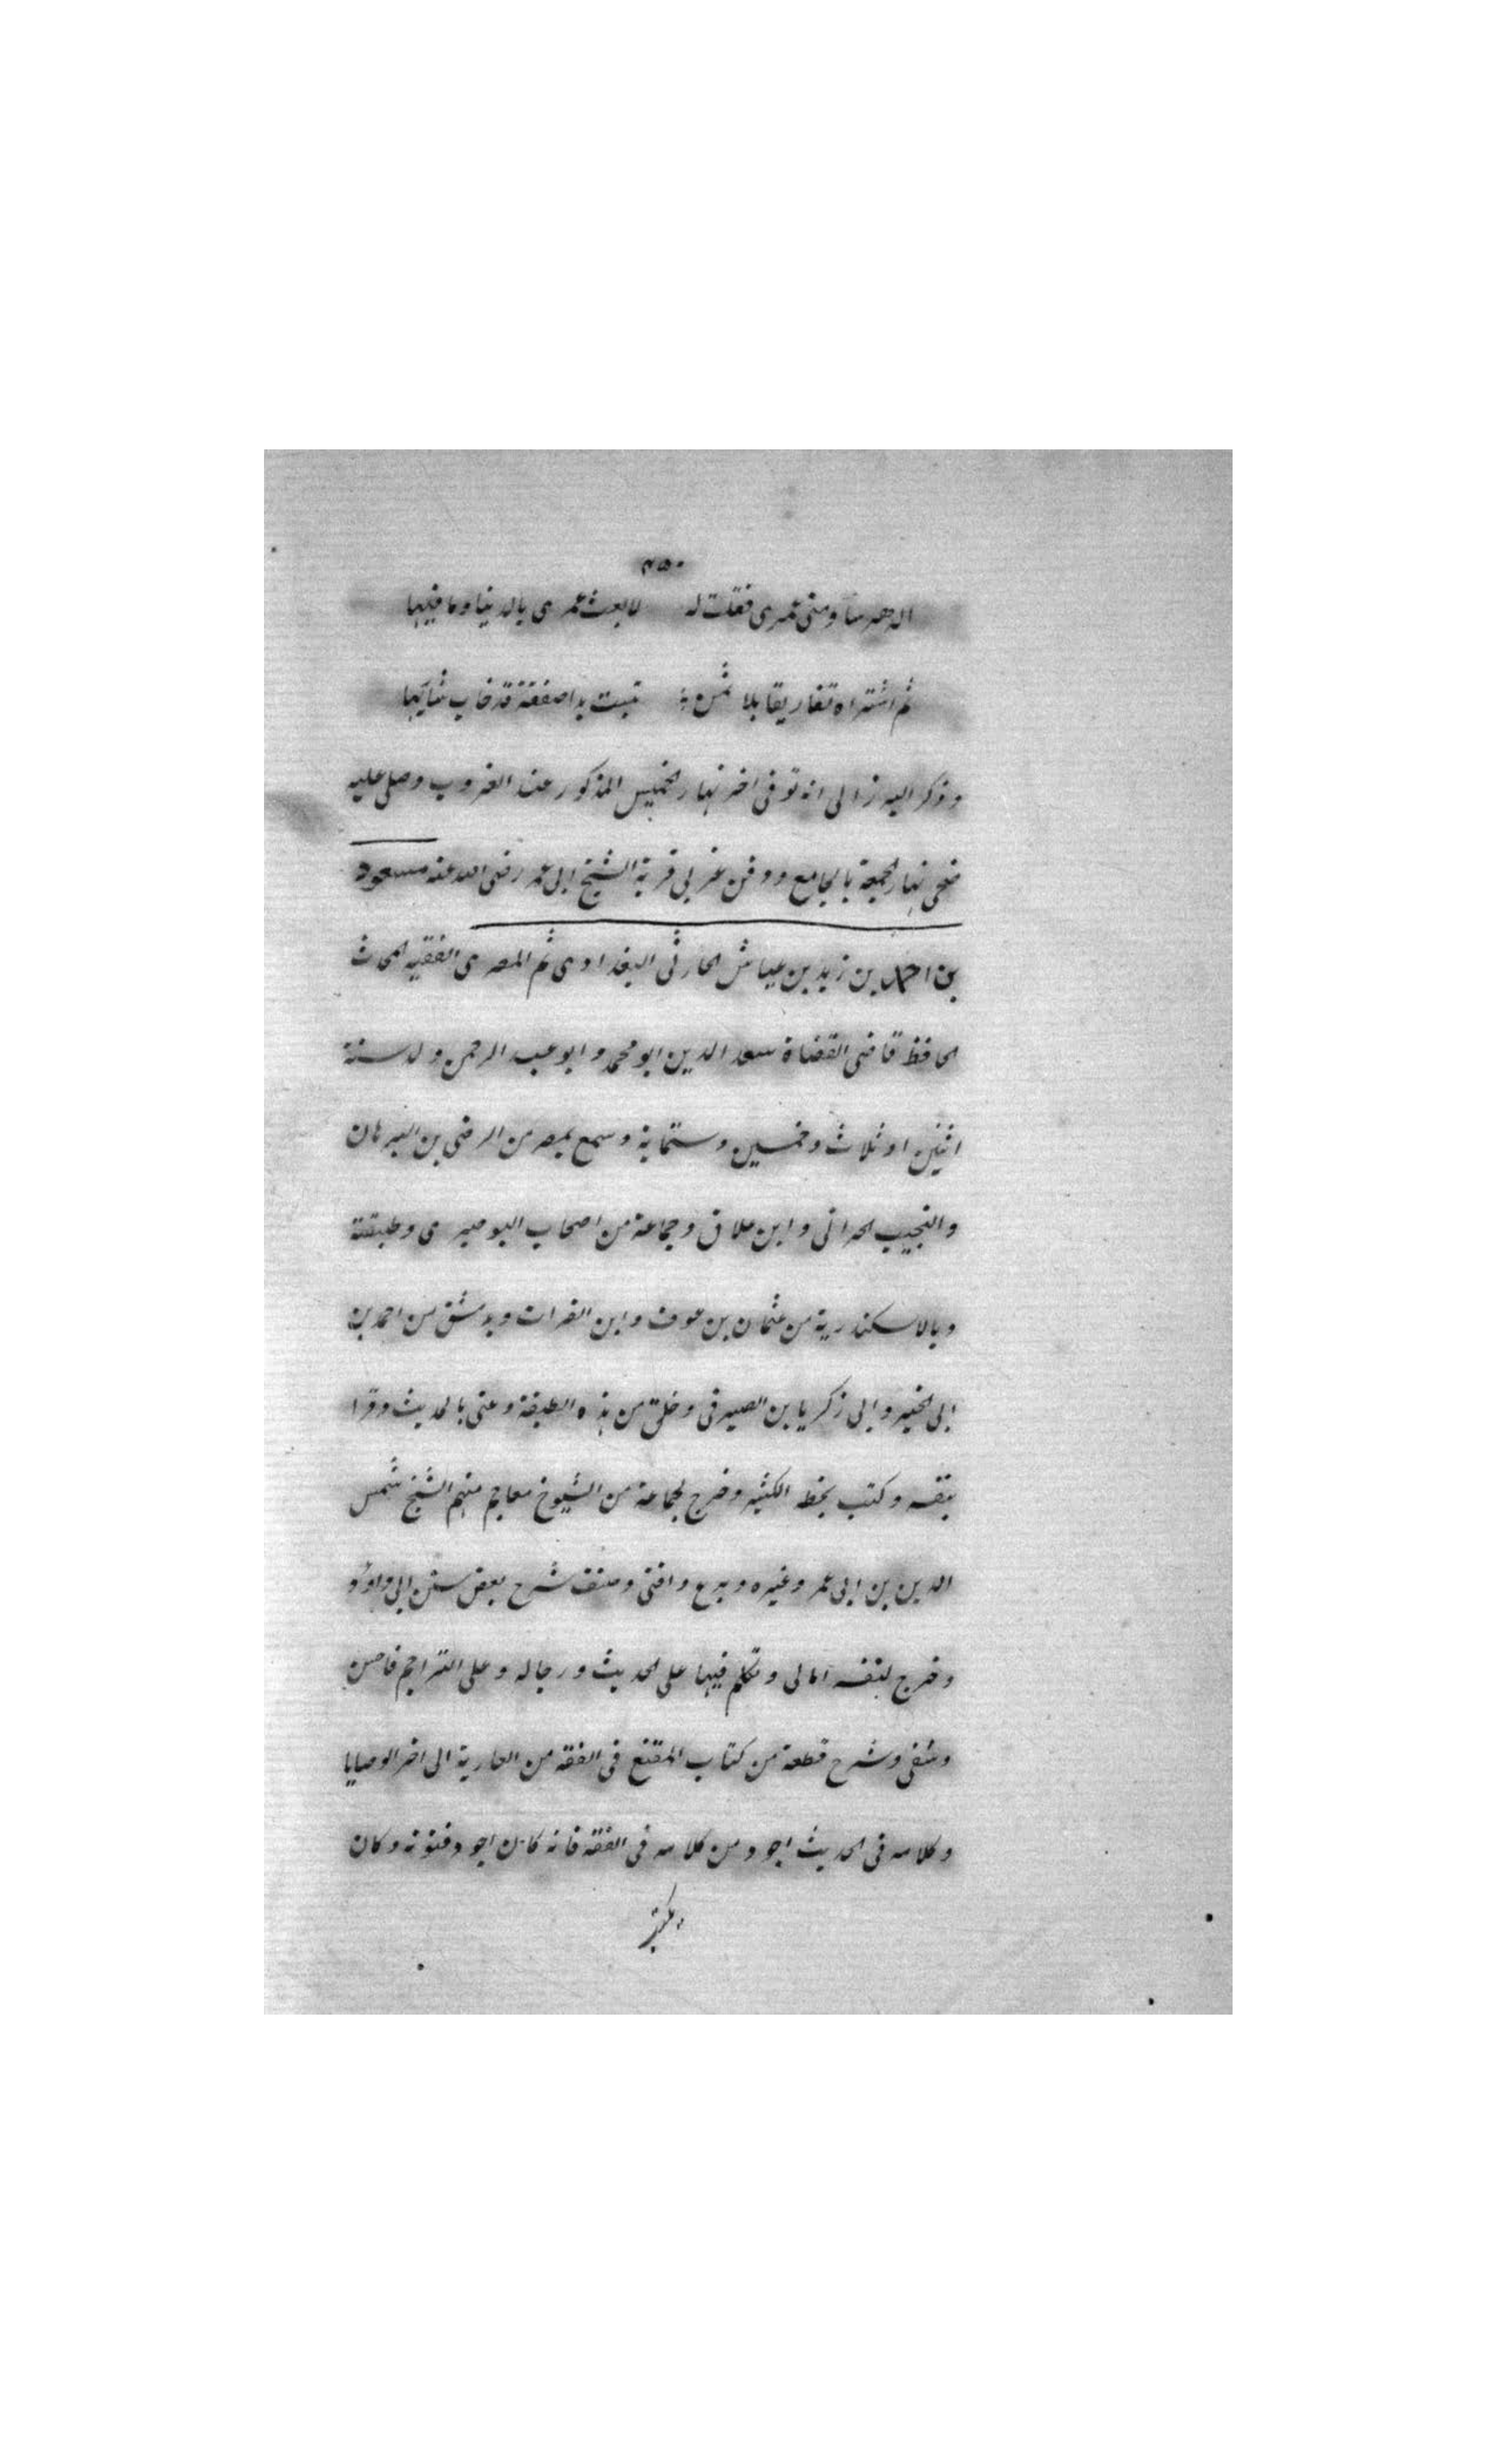 ٤٥٠
الدهر ساومنى عمرى فقلت له لا بعت عمرى بالدنيا وما فيها
ثم اشتراه تفاريقا بلا ثمن تبت يدا صفقة قد خاب شاريها
وذكر البرزالى انه توفى اخر نهار الخميس المذكور عند الغروب وصلى عليه
ضحى نهار الجمعة بالجامع ودفن غربى تربة الشيخ ابى عمر رضى الله عنه مسعود
بن احمد بن زيد بن عياش الحارثى البغدادى ثم المصرى الفقيه المحدث
الحافظ قاضى القضاة سعد الدين ابو محمد وابو عبد الرحمن ولد سنة
اثنين او ثلاث وخمسين وستماية وسمع بمصر من الرضى بن البرهان
والنجيب الحرانى وابن علاق وجماعة من اصحاب البوصيرى وطبقته
وبالاسكندرية من عثمان بن عوف وابن الفرات وبدمشق من احمد بن
ابى الخير وابى زكريا بن الصيرفى وخلق من هذه الطبقة وعنى بالحديث وقرا
بنفسه وكتب بخطه الكثير وخرج لجماعة من الشيوخ معاجم منهم الشيخ شمس
الدين بن ابى عمر وغيره وبرع وافتى وصنف شرح بعض سنن ابى داود
وخرج لنفسه امالى وتكلم فيها على الحديث ورجاله وعلى التراجم فاحسن
وشفى وشرح قطعة من كتاب المقنع فى الفقه من العارية الى اخر الوصايا
وكلامه فى الحديث اجود من كلامه فى الفقه فانه كان اجود فنونه وكان